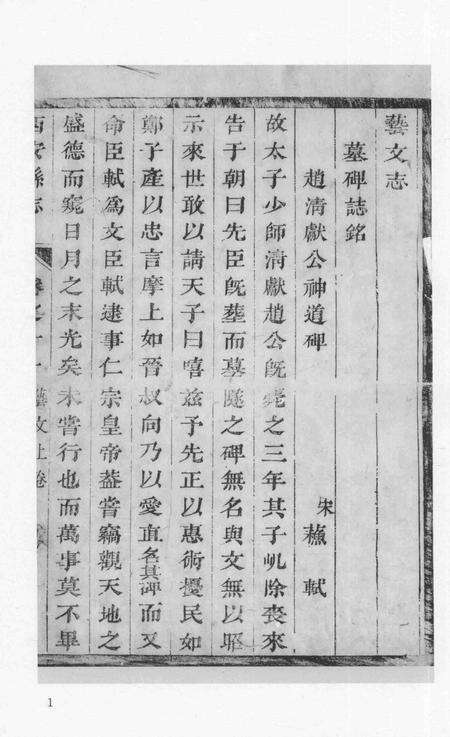 藝文志
墓碑誌銘
趙清獻公神道碑 宋 蘇軾
故太子少師清獻趙公旣薨之三年其子㞦除喪來
告于朝曰先臣旣葬而墓隧之碑無名與文無以昭
示來世敢以請天子曰嘻玆予先正以惠術擾民如
鄭子產以忠言摩上如晉叔向乃以愛直名其碑而又
命臣軾爲文臣軾逮事仁宗皇帝葢嘗竊觀天地之
盛德而窺日月之末光矣未嘗行也而萬事莫不畢
西安縣志 卷之 藝文上卷
1